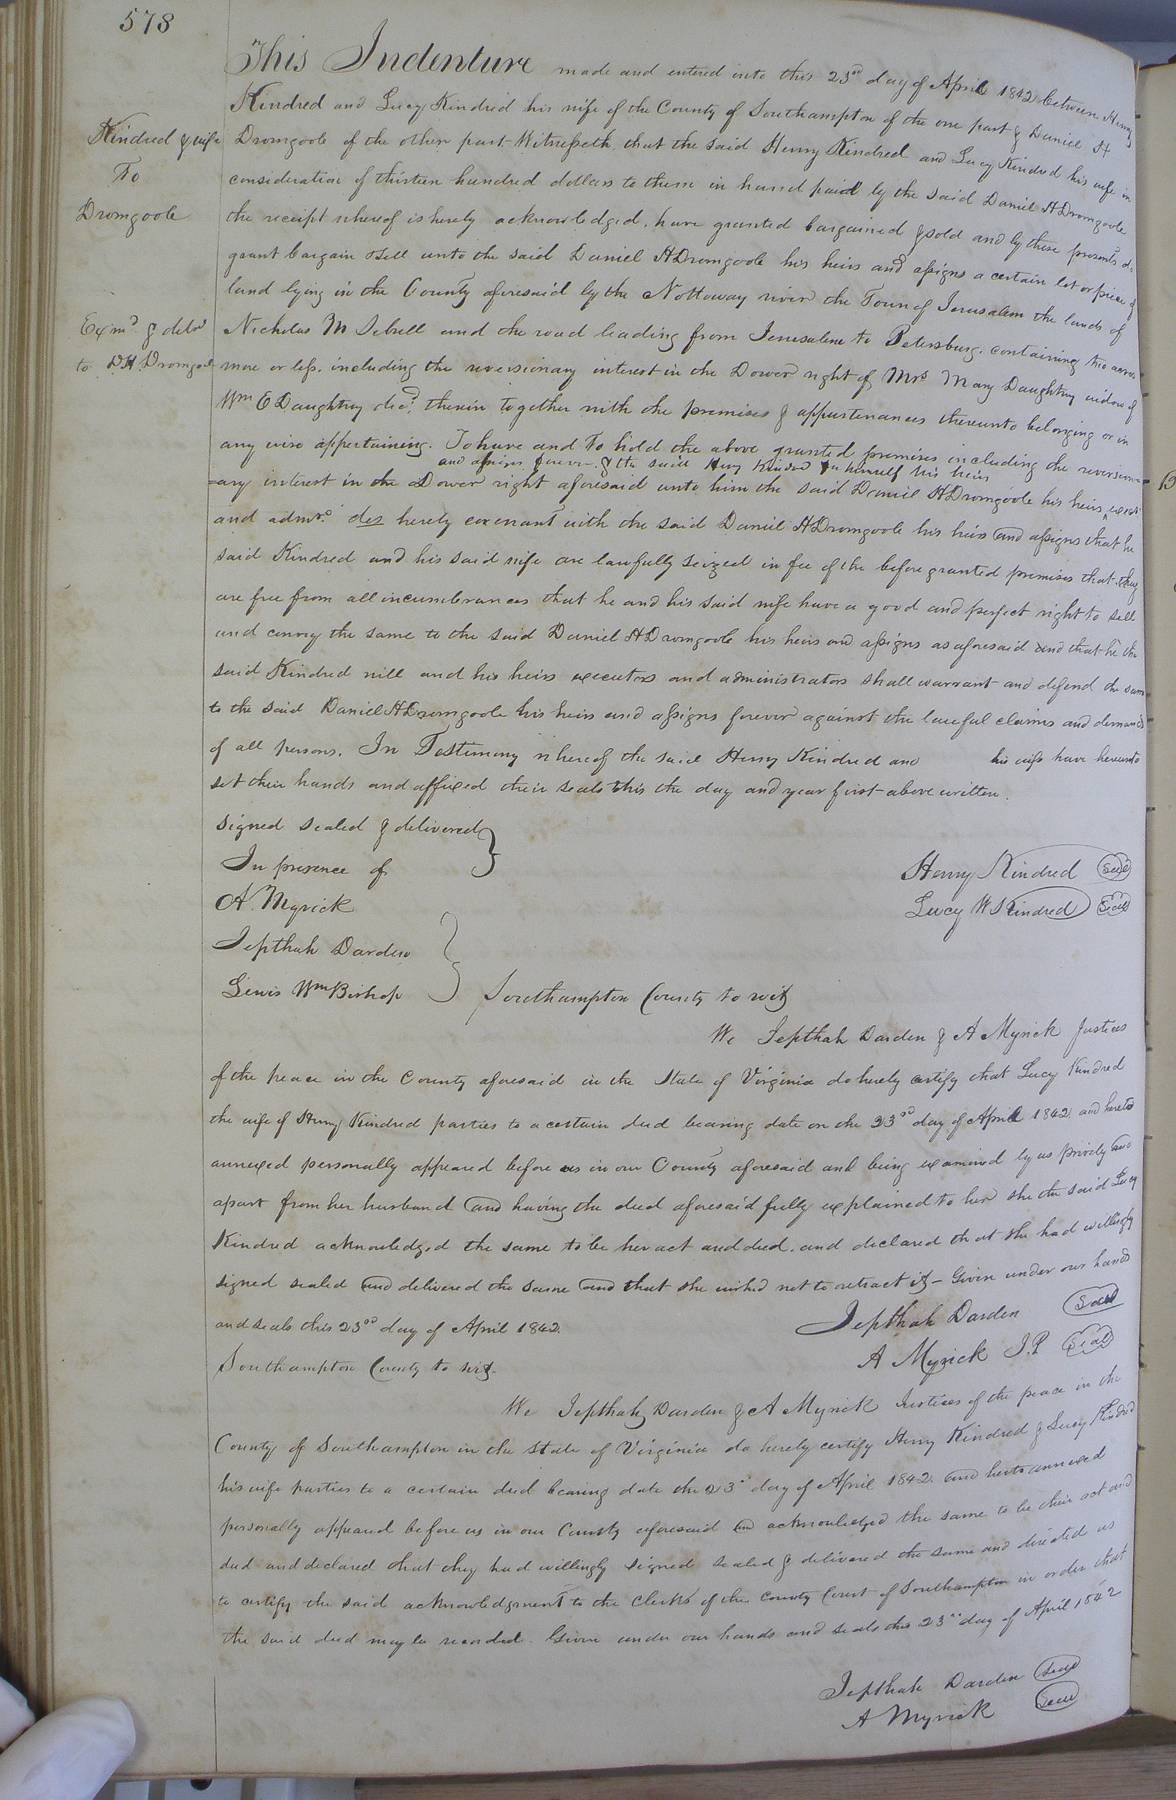 578
This Indenture made and entered into this 23rd day of April 1842 between Henry
Kindred and Lucy Kindred his wife of the County of Southampton of the one part & Daniel H
Kindred & wife
To
Dromgoole
Dromgoole of the other part Witnesseth, that the said Henry Kindred and Lucy Kindred his wife in
consideration of thirteen hundred dollars to them in hand paid by the said Daniel H Dromgoole
the receipt whereof is hereby acknowledged, have granted bargained & sold and by these presents do
grant bargain & sell unto the said Daniel H Dromgoole his heirs and assigns a certain lot or piece of
land lying in the County aforesaid by the Nottoway river the Town of Jerusalem the lands of
Exmd & deld
to D.H. Dromgoole
Nicholas M Sebrell and the road leading from Jerusalem to Petersburg, containing two acres
more or less, including the reversionary interest in the Dower right of Mrs Mary Daughtry widow of
Wm E Daughtry decd. therein together with the premises & appurtenances thereunto belonging or in
any wise appertaining. To have and to hold the above granted premises including the reversion=
and assigns forever & the said Henry Kindred for himself his heirs
=ary interest in the Dower right aforesaid unto him the said Daniel H Dromgoole his heirs execrs
and admrs. des hereby covenant with the said Daniel H Dromgoole his heirs and assigns that he
said Kindred and his said wife are lawfully seized in fee of the before granted premises that they
are free from all incumberances that he and his said wife have a good and perfect right to sell
and convey the same to the said Daniel H Dromgoole his heirs and assigns as aforesaid and that he the
said Kindred will and his heirs executors and administrators shall warrant and defend the same
to the said Daniel H Dromgoole his heirs and assigns forever against the lawful claims and demands
of all persons. In Testimony whereof the said Henry Kindred and his wife have hereunto
set their hands and affixed their seals this the day and year first above written.
Signed sealed & delivered
In presence of
A. Myrick
Jepthah Darden
Lewis Wm Bishop
Henry Kindred Seal
Lucy W S Kindred Seal
Southampton County to wit
We Jepthah Darden & A Myrick Justices
of the peace in the County aforesaid in the State of Virginia do hereby certify that Lucy Kindred
the wife of Henry Kindred parties to a certain deed bearing date on the 23rd day of April 1842 and hereto
annexed personally appeared before us in our County aforesaid and being examined by us privily and
apart from her husband and having the deed aforesaid fully explained to her she the said Lucy
Kindred acknowledged the same to be her act and deed, and declared that she had willingly
signed sealed and delivered the same and that she wished not to retract it - Given under our hands
and seals this 23rd day of April 1842.
Jepthah Darden Seal
A Myrick J.P Seal
Southampton County to wit.
We Jepthah Darden & A Myrick Justices of the peace in the
County of Southampton in the State of Virginia do hereby certify Henry Kindred & Lucy Kindred
his wife parties to a certain deed bearing date the 23rd day of April 1842 and hereto annexed
personally appeared before us in our County aforesaid and acknowledged the same to be their act and
deed and declared that they had willingly signed sealed & delivered the same and directed us
to certify the said acknowledgment to the Clerks of the County Court of Southampton in order that
the said deed may be recorded. Given under our hands and seals this 23rd day of April 1842
Jepthah Darden Seal
A Myrick Seal